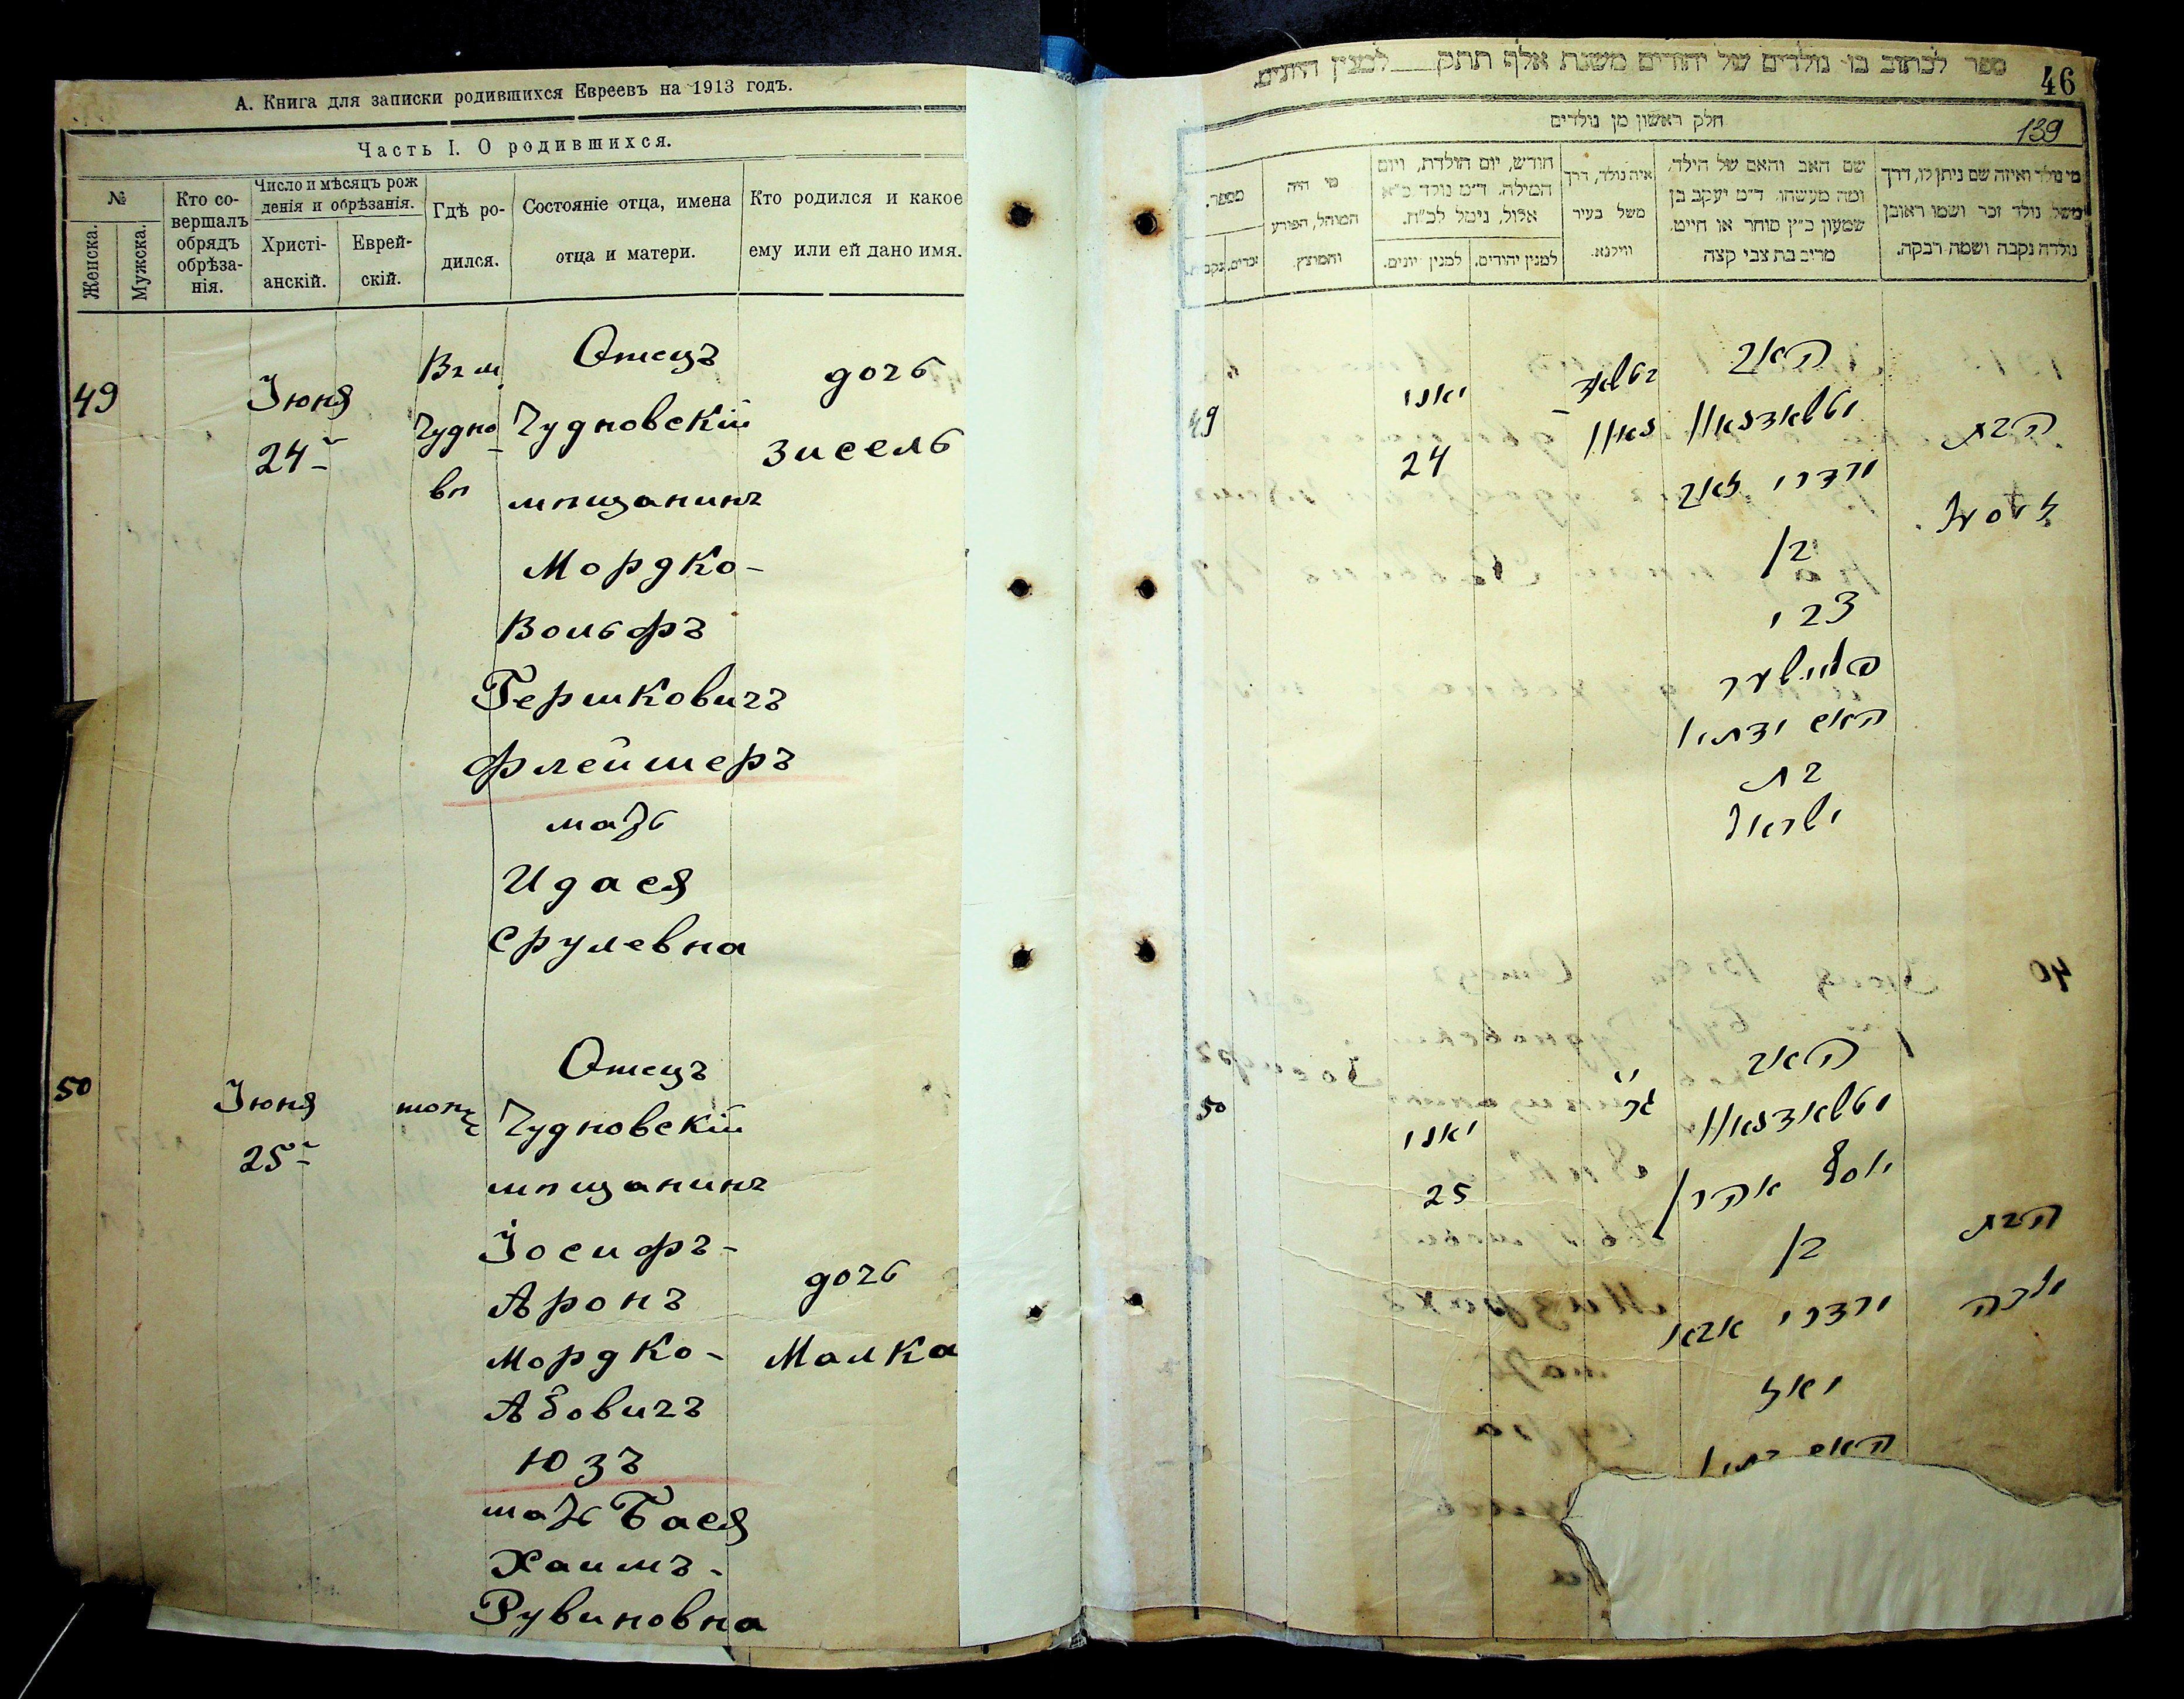 А. Книга для записки родившихся Евреевъ на 1913 годъ.
Часть I. О родившихся.
№
Женска.
Мужска.
Кто со-
вершалъ
обрядъ
обрѣза-
нія.
Число и мѣсяцъ рож
денія и обрѣзанія.
Христі-
анскій.
Еврей-
скій.
Гдѣ ро-
дился.
Состояніе отца, имена
отца и матери.
Кто родился и какое
ему или ей дано имя.
49
Іюня
24
Въ м.
Чудно
вѣ
Отецъ
Чудновскій
мѣщанинъ
Мордко-
Вольфъ
Гершковичъ
Флейшеръ
мать
Идася
Срулевна
дочь
Зисель
50
Іюня
25
тоже
Отецъ
Чудновскій
мѣщанинъ
Іосифъ-
Аронъ
Мордко-
Абовичъ
Юзъ
мать Бася
Хаимъ-
Рувиновна
дочь
Малка
ספר לכתוב בו נולדים של יהודים משנת אלף תתק למנין היונים
46
חלק ראשון מן נולדים
139
מי נולד ואיזה שם ניתן לו, דרך
משל, נולד זכר ושמו ראובן
נולדה נקבה ושמה רבקה.
שם האב והאם של הילד,
ומה מעשהו, ד״מ יעקב בן
שמעון כ״ץ סוחר או חייט,
מרים בת צבי קצה
איה נולד, דרך
משל בעיר
ווילנא.
חודש, יום הולדת, ויום
המילה, ד״מ נולד כ״א
אלול, נימל לכ״ח.
למנין יהודים.
למנין יונים.
מי היה
המוהל, הפורע
והמוצץ.
מספר.
זכרים.
נקבות.
49
יאני
24
האב
מרדכי זאב
בן
צבי
פליישער
בת
ישראל
הבת
זיסל
50
יאני
25
האב
יוסף אהרן
בן
מרדכי אבא
יאז
הבת
מלכה